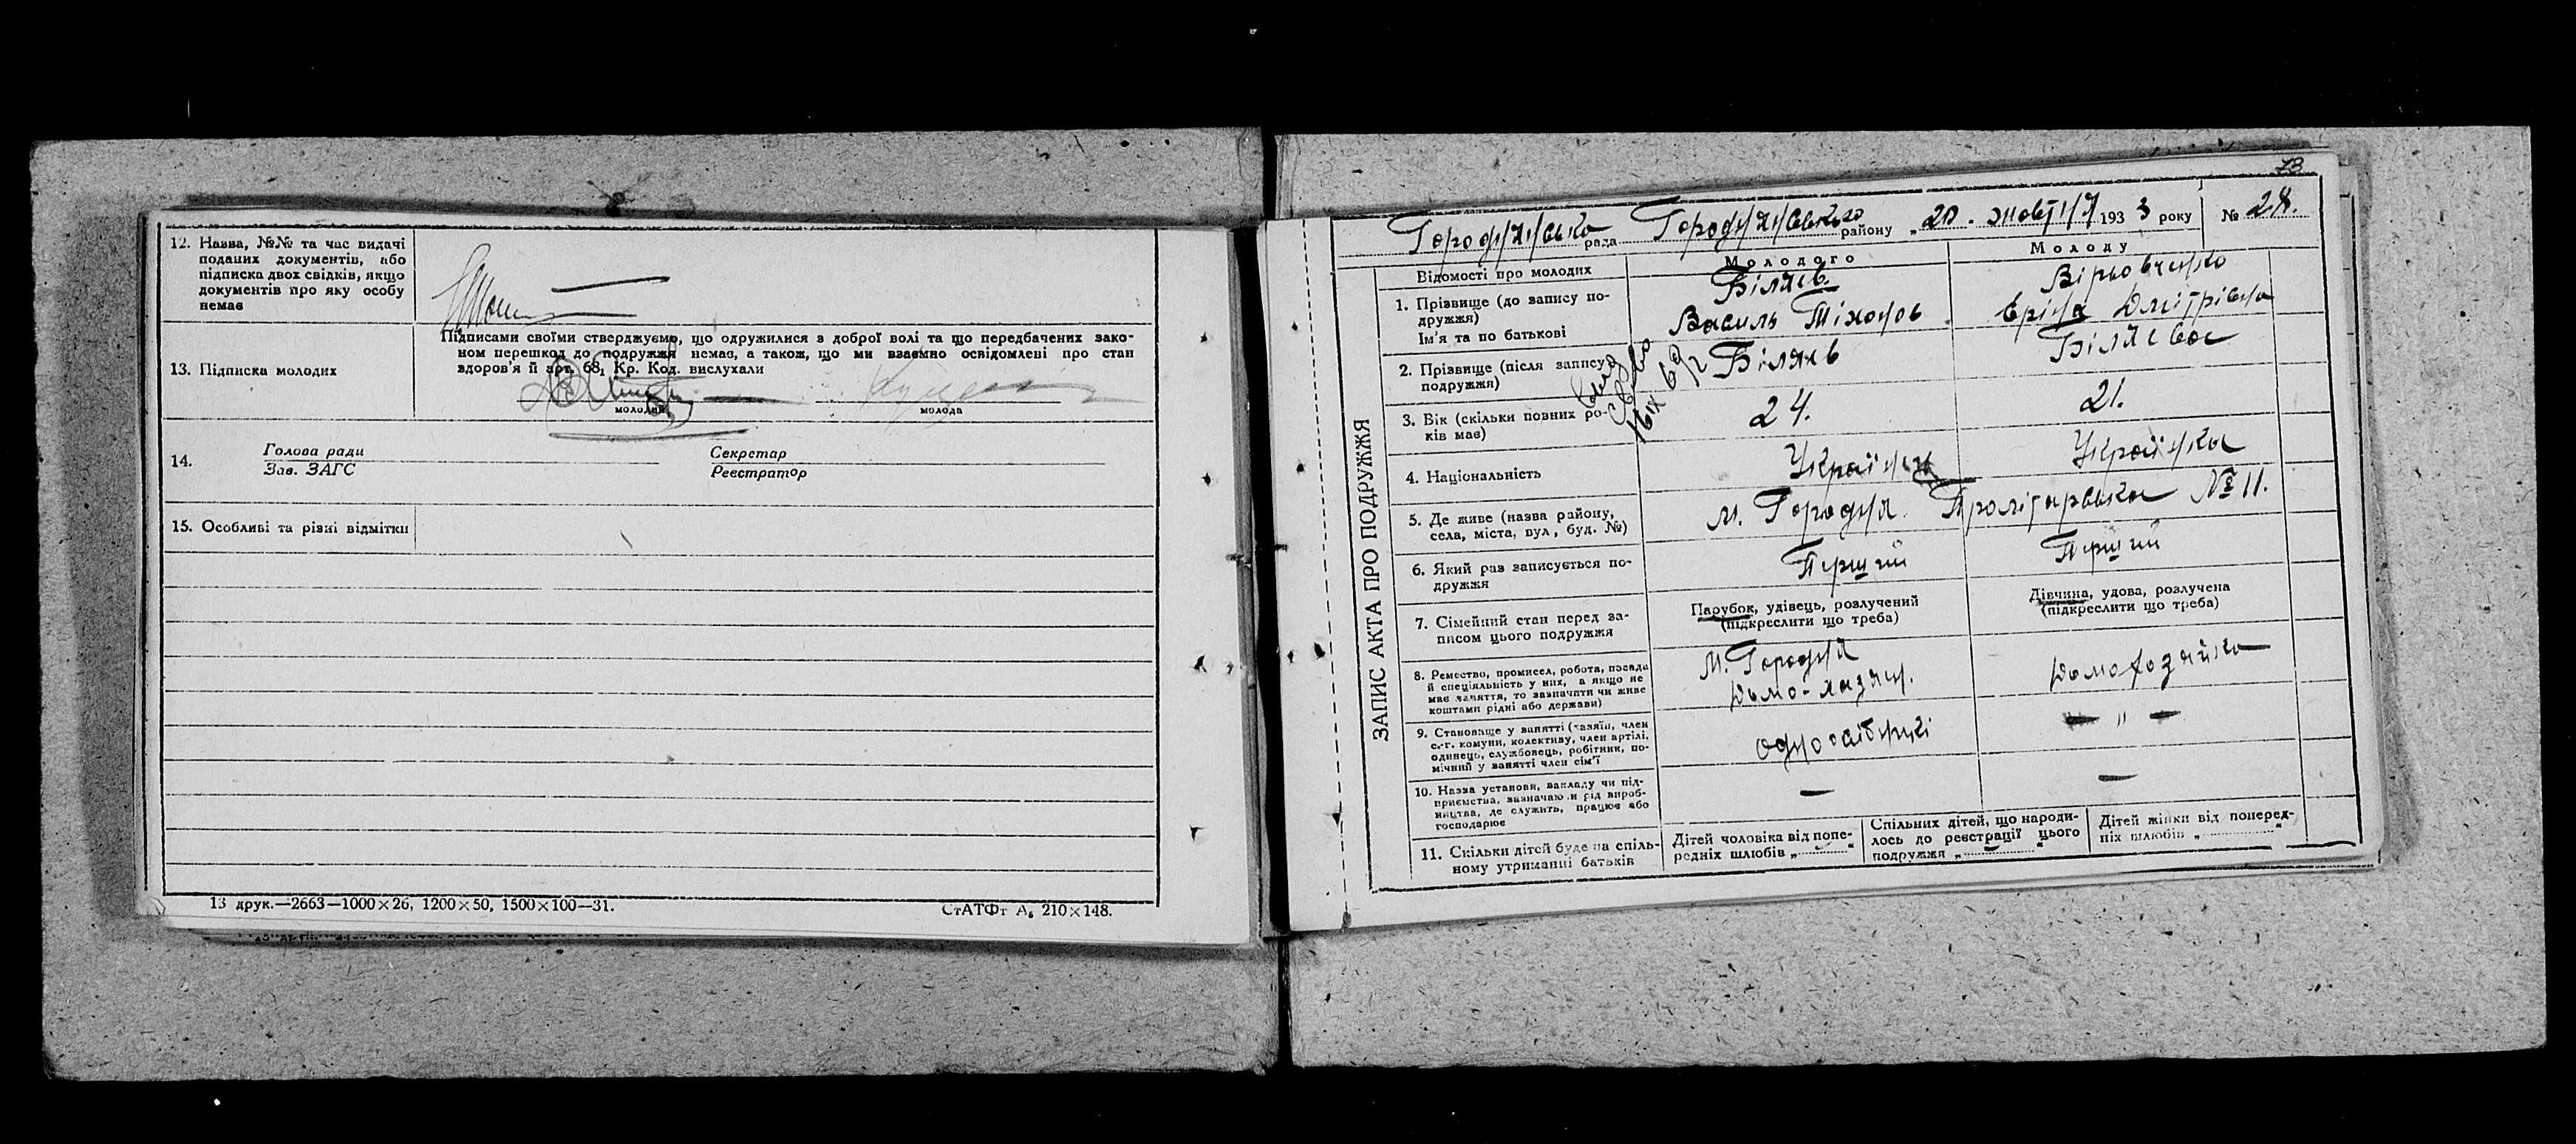 12. Назва, №№ та час видачі
поданих документів, або
підписка двох свідків, якщо
документів про яку особу
немає
13. Підписка молодих
Підписами своїми стверджуємо, що одружилися з доброї волі та що передбачених зако-
ном перешкод до подружжя немає, а також, що ми взаємно освідомлені про стан
здоров'я й арт. 68, Кр. Код. вислухали
молодий
молода
14.
Голова ради
Зав. ЗАГС
Секретар
Реєстратор
15. Особливі та різні відмітки
13 друк.—2663—1000×26, 1200×50, 1500×100—31.
СтАТФт А₅ 210×148.
73
Городнянська рада Городнянського району „20. жовтня 1933 року № 28.
ЗАПИС АКТА ПРО ПОДРУЖЖЯ
Відомості про молодих
Молодого
Молоду
1. Прізвище (до запису по-
дружжя)
Ім'я та по батькові
Біляєв
Василь Тіхонов
Вірьовченко
Єріна Дмітрівна
2. Прізвище (після запису
подружжя)
Біляєв
Біляєва
16 IX 69
3. Вік (скільки повних ро-
ків має)
24.
21.
4. Національність
Українка
5. Де живе (назва району,
села, міста, вул, буд. №)
м. Городня. Пролітарська № 11.
6. Який раз записується по-
дружжя
Перший
Перший
7. Сімейний стан перед за-
писом цього подружжя
Парубок, удівець, розлучений
(підкреслити що треба)
Дівчина, удова, розлучена
(підкреслити що треба)
8. Ремество, промисел, робота, посада
й спеціяльність у них, а якщо не
має заняття, то зазначити чи живе
коштами рідні або держави)
М. Городня
Домо-хазяин.
Домохозяйка
9. Становище у занятті (хазяїн, член
с.-г. комуни, колективу, член артілі,
одинець, службовець, робітник, по-
мічний у занятті член сім'ї
— " —
10. Назва установи, закладу чи під-
приємства, зазначаючи рід вироб-
ництва, де служить, працює або
господарює
—
—
11. Скільки дітей буде на спіль-
ному утриманні батьків
Дітей чоловіка від попе-
редніх шлюбів „ — "
Спільних дітей, що народи-
лось до реєстрації цього
подружжя „ — "
Дітей жінки від поперед-
ніх шлюбів „ "